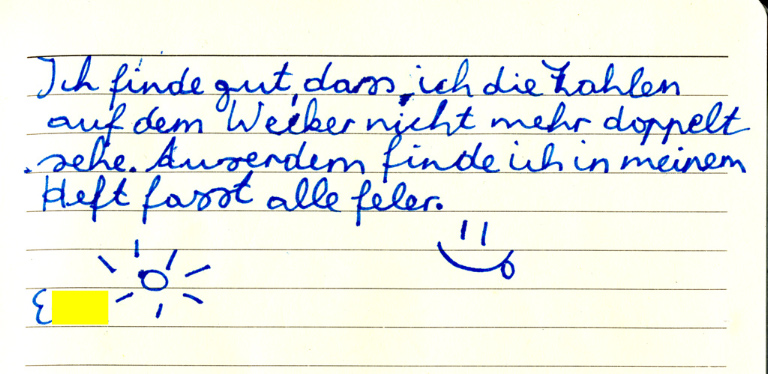 Ich finde gut, dass, ich die Zahlen
auf dem Wecker nicht mehr doppelt
sehe. Auserdem finde ich in meinem
Heft fasst alle feler.
E